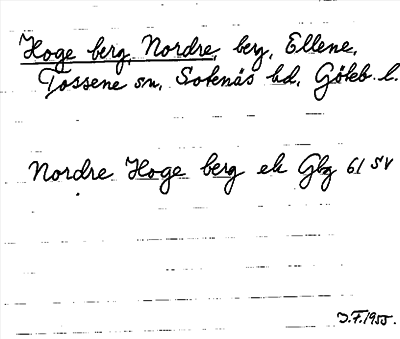 Hoge berg, Nordre, berg, Ellene,
Tossene sn, Sotenäs hd, Göteb. l.
Nordre Hoge berg ek Gbg 61 SV
J.F. 1955.